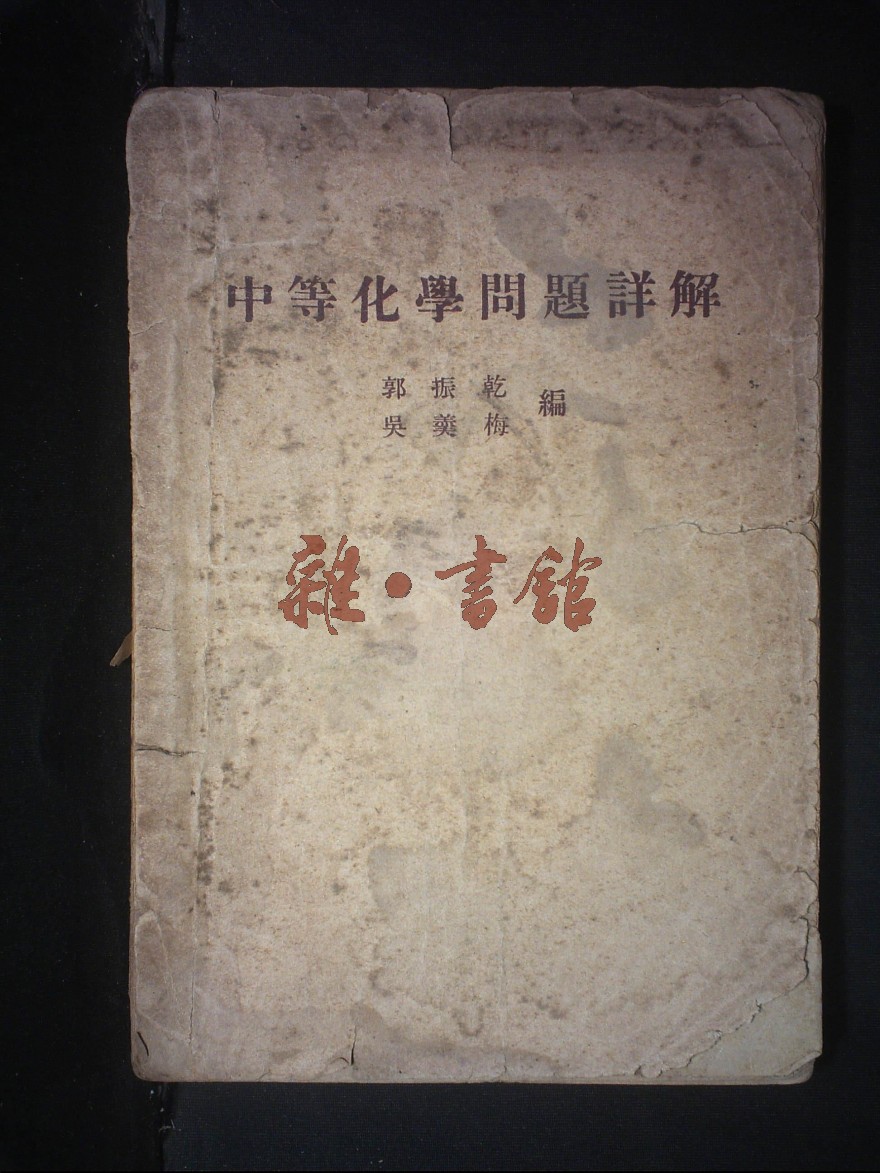 中等化學問題詳解
郭振乾
吳羹梅
編
雜·書館